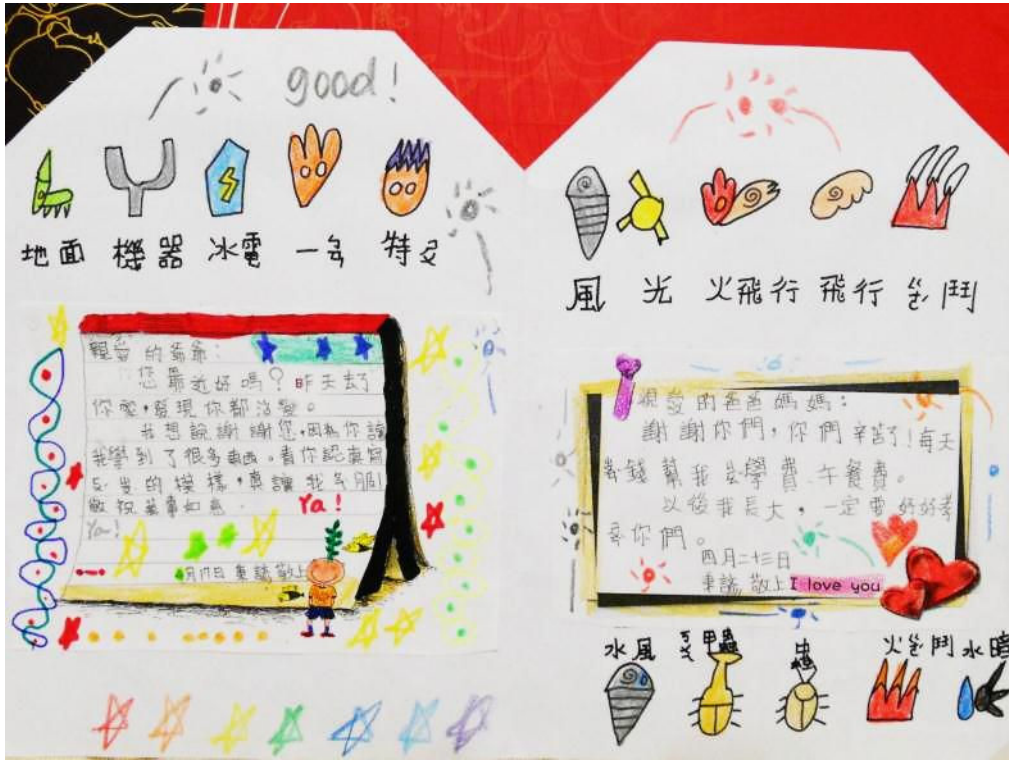 good!
地面 機器 冰電 特
親愛的爺爺：
您最近好嗎？昨天去了
你家，發現你都沒變。
我想說謝謝您，因為你讓
我學到了很多東西。看你認真
的模樣，真讓我
敬祝萬事如意. Ya!
Ya!
月17日 敬上
風 光 火飛行 飛行 鬥
親愛的爸爸媽媽：
謝謝你們，你們辛苦了！每天
錢幫我交學費、午餐費。
以後我長大，一定要好好孝
你們。
四月二十三日
敬上 I love you
水風 甲蟲 蟲 火 鬥 水暗